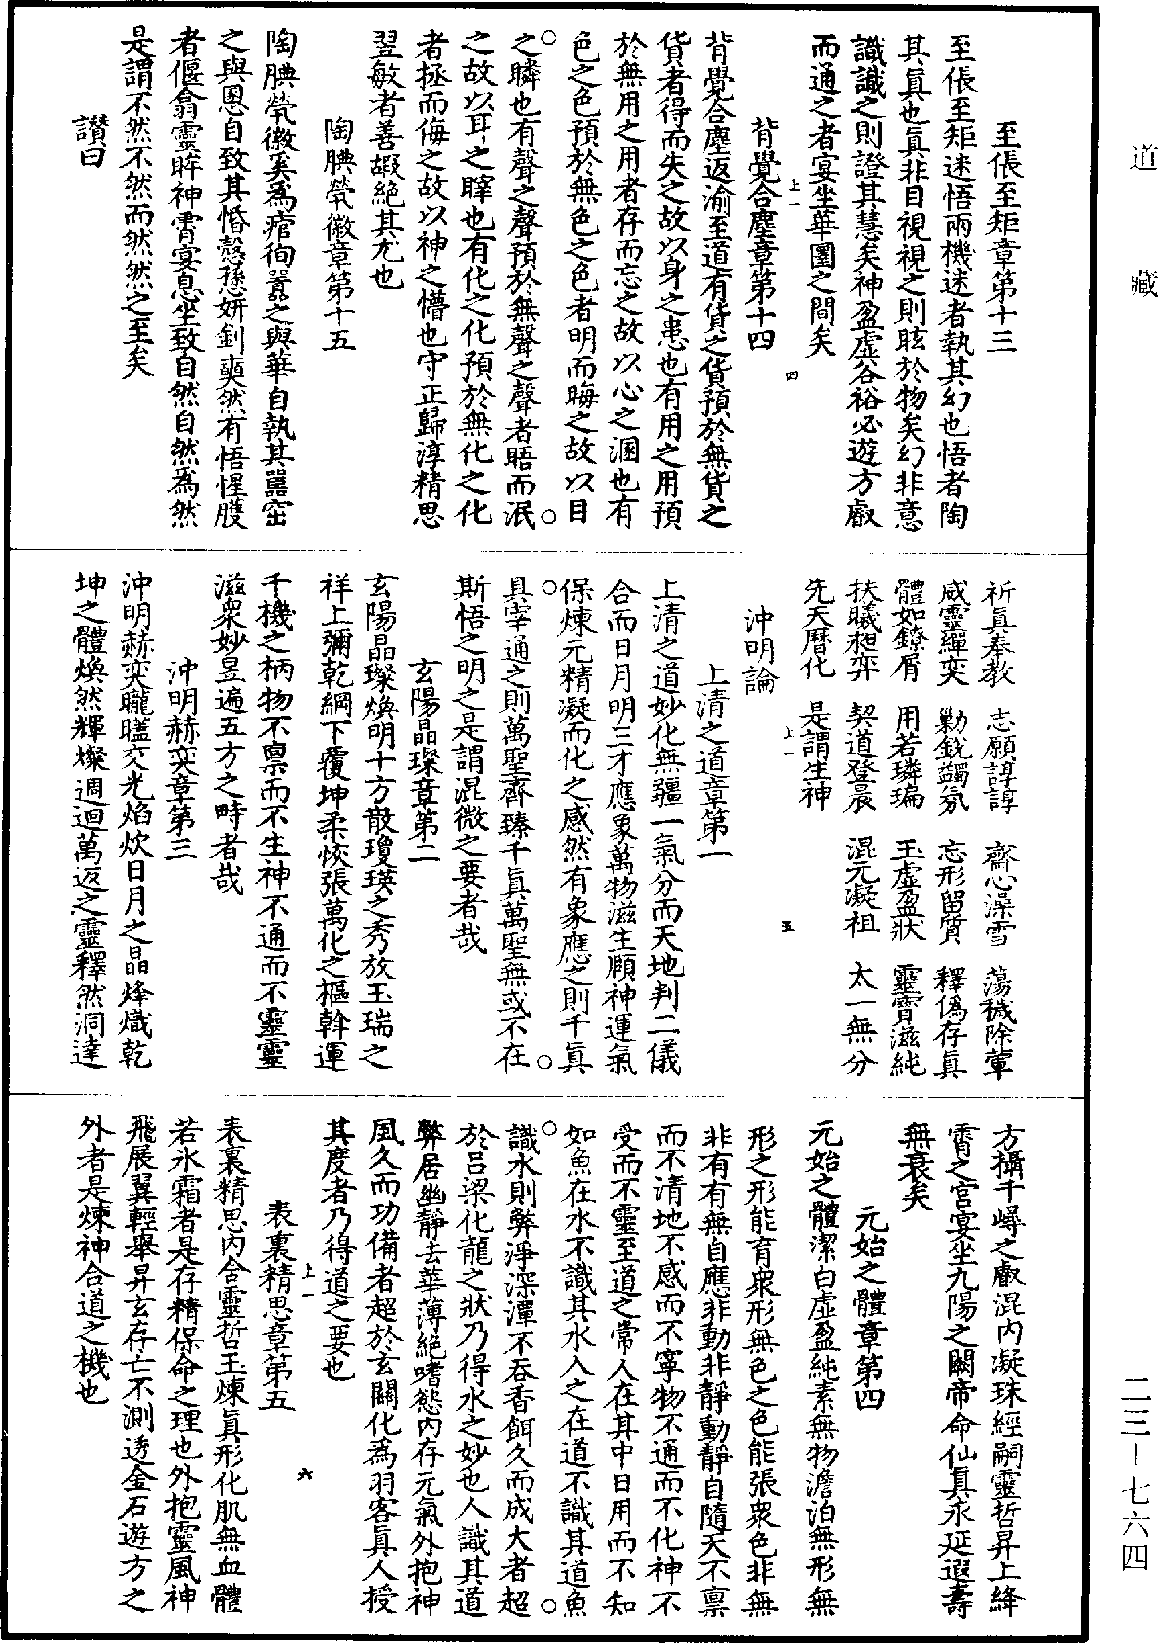 道藏
至倀至矩章第十三
至倀至矩迷悟兩機迷者執其幻也悟者陶
其眞也眞非目視視之則眩於物矣幻非意
識識之則證其慧矣神盈虛谷裕必遊方叡
而通之者宴坐華圃之間矣
背覺合塵章第十四
背覺合塵返渝至道有貨之貨預於無貨之
貨者得而失之故以身之患也有用之用預
於無用之用者存而忘之故以心之溷也有
色之色預於無色之色者明而晦之故以目
之瞵也有聲之聲預於無聲之聲者晤而泯
之故以耳之聹也有化之化預於無化之化
者拯而侮之故以神之懵也守正歸淳精思
翌敏者善嘏絕其尤也
陶腆煢徽章第十五
陶腆煢徽奚爲痯徇囂之與華自執其噐窋
之與恩自致其惛愨孫妍釗奭然有悟惺膄
者偃翕靈眸神霄宴息坐致自然自然爲然
是謂不然不然而然然之至矣
讚曰
祈眞奉教 志願諄諄 齋心澡雪 蕩穢除葷
咸靈繟奕 勦銳蠲氛 忘形留質 釋僞存眞
體如鐐屑 用若璘㻞 玉虛盈狀 靈寶滋純
扶曦䄇弈 契道登晨 混元凝祖 太一無分
先天曆化 是謂生神
上一 四
沖明論
上清之道章第一
上清之道妙化無疆一氣分而天地判二儀
合而日月明三才應象萬物滋生願神運氣
保煉元精凝而化之感然有象應之則千眞
具宰通之則萬聖齊臻千眞萬聖無或不在
斯悟之明之是謂混微之要者哉
玄陽晶璨章第二
玄陽晶璨煥明十方散瓊瑛之秀放玉瑞之
祥上彌乾綱下覆坤柔恢張萬化之樞斡運
千機之柄物不禀而不生神不通而不靈靈
滋衆妙昱遍五方之畤者哉
沖明赫奕章第三
沖明赫奕曨𥌯交光焰炊日月之晶烽熾乾
坤之體煥然輝燦週迴萬返之靈釋然洞達
上一 五
方攝千㟳之叡混内凝珠經嗣靈哲昇上絳
霄之宮宴坐九陽之關帝命仙眞永延遐壽
無衰矣
元始之體章第四
元始之體潔白虛盈純素無物澹泊無形無
形之形能育衆形無色之色能張衆色非無
非有有無自應非動非靜動靜自隨天不禀
而不清地不感而不寧物不通而不化神不
受而不靈至道之常人在其中日用而不知
如魚在水不識其水人之在道不識其道魚
識水則弊淨深潭不吞香餌久而成大者超
於吕梁化龍之狀乃得水之妙也人識其道
弊居幽靜去華薄絕嗜慾内存元氣外抱神
風久而功備者超於玄關化爲羽客眞人授
其度者乃得道之要也
表裏精思章第五
表裏精思内含靈哲玉煉眞形化肌無血體
若氷霜者是存精保命之理也外抱靈風神
飛展翼輕舉昇玄存亡不測透金石遊方之
外者是煉神合道之機也
上一 六
二三－七六四